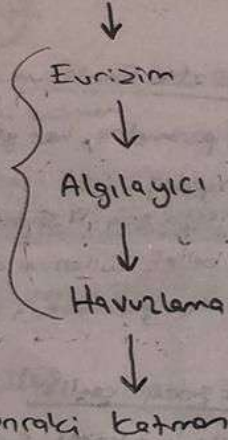 Evrizim
Algılayıcı
Havuzlama
onraki Katman